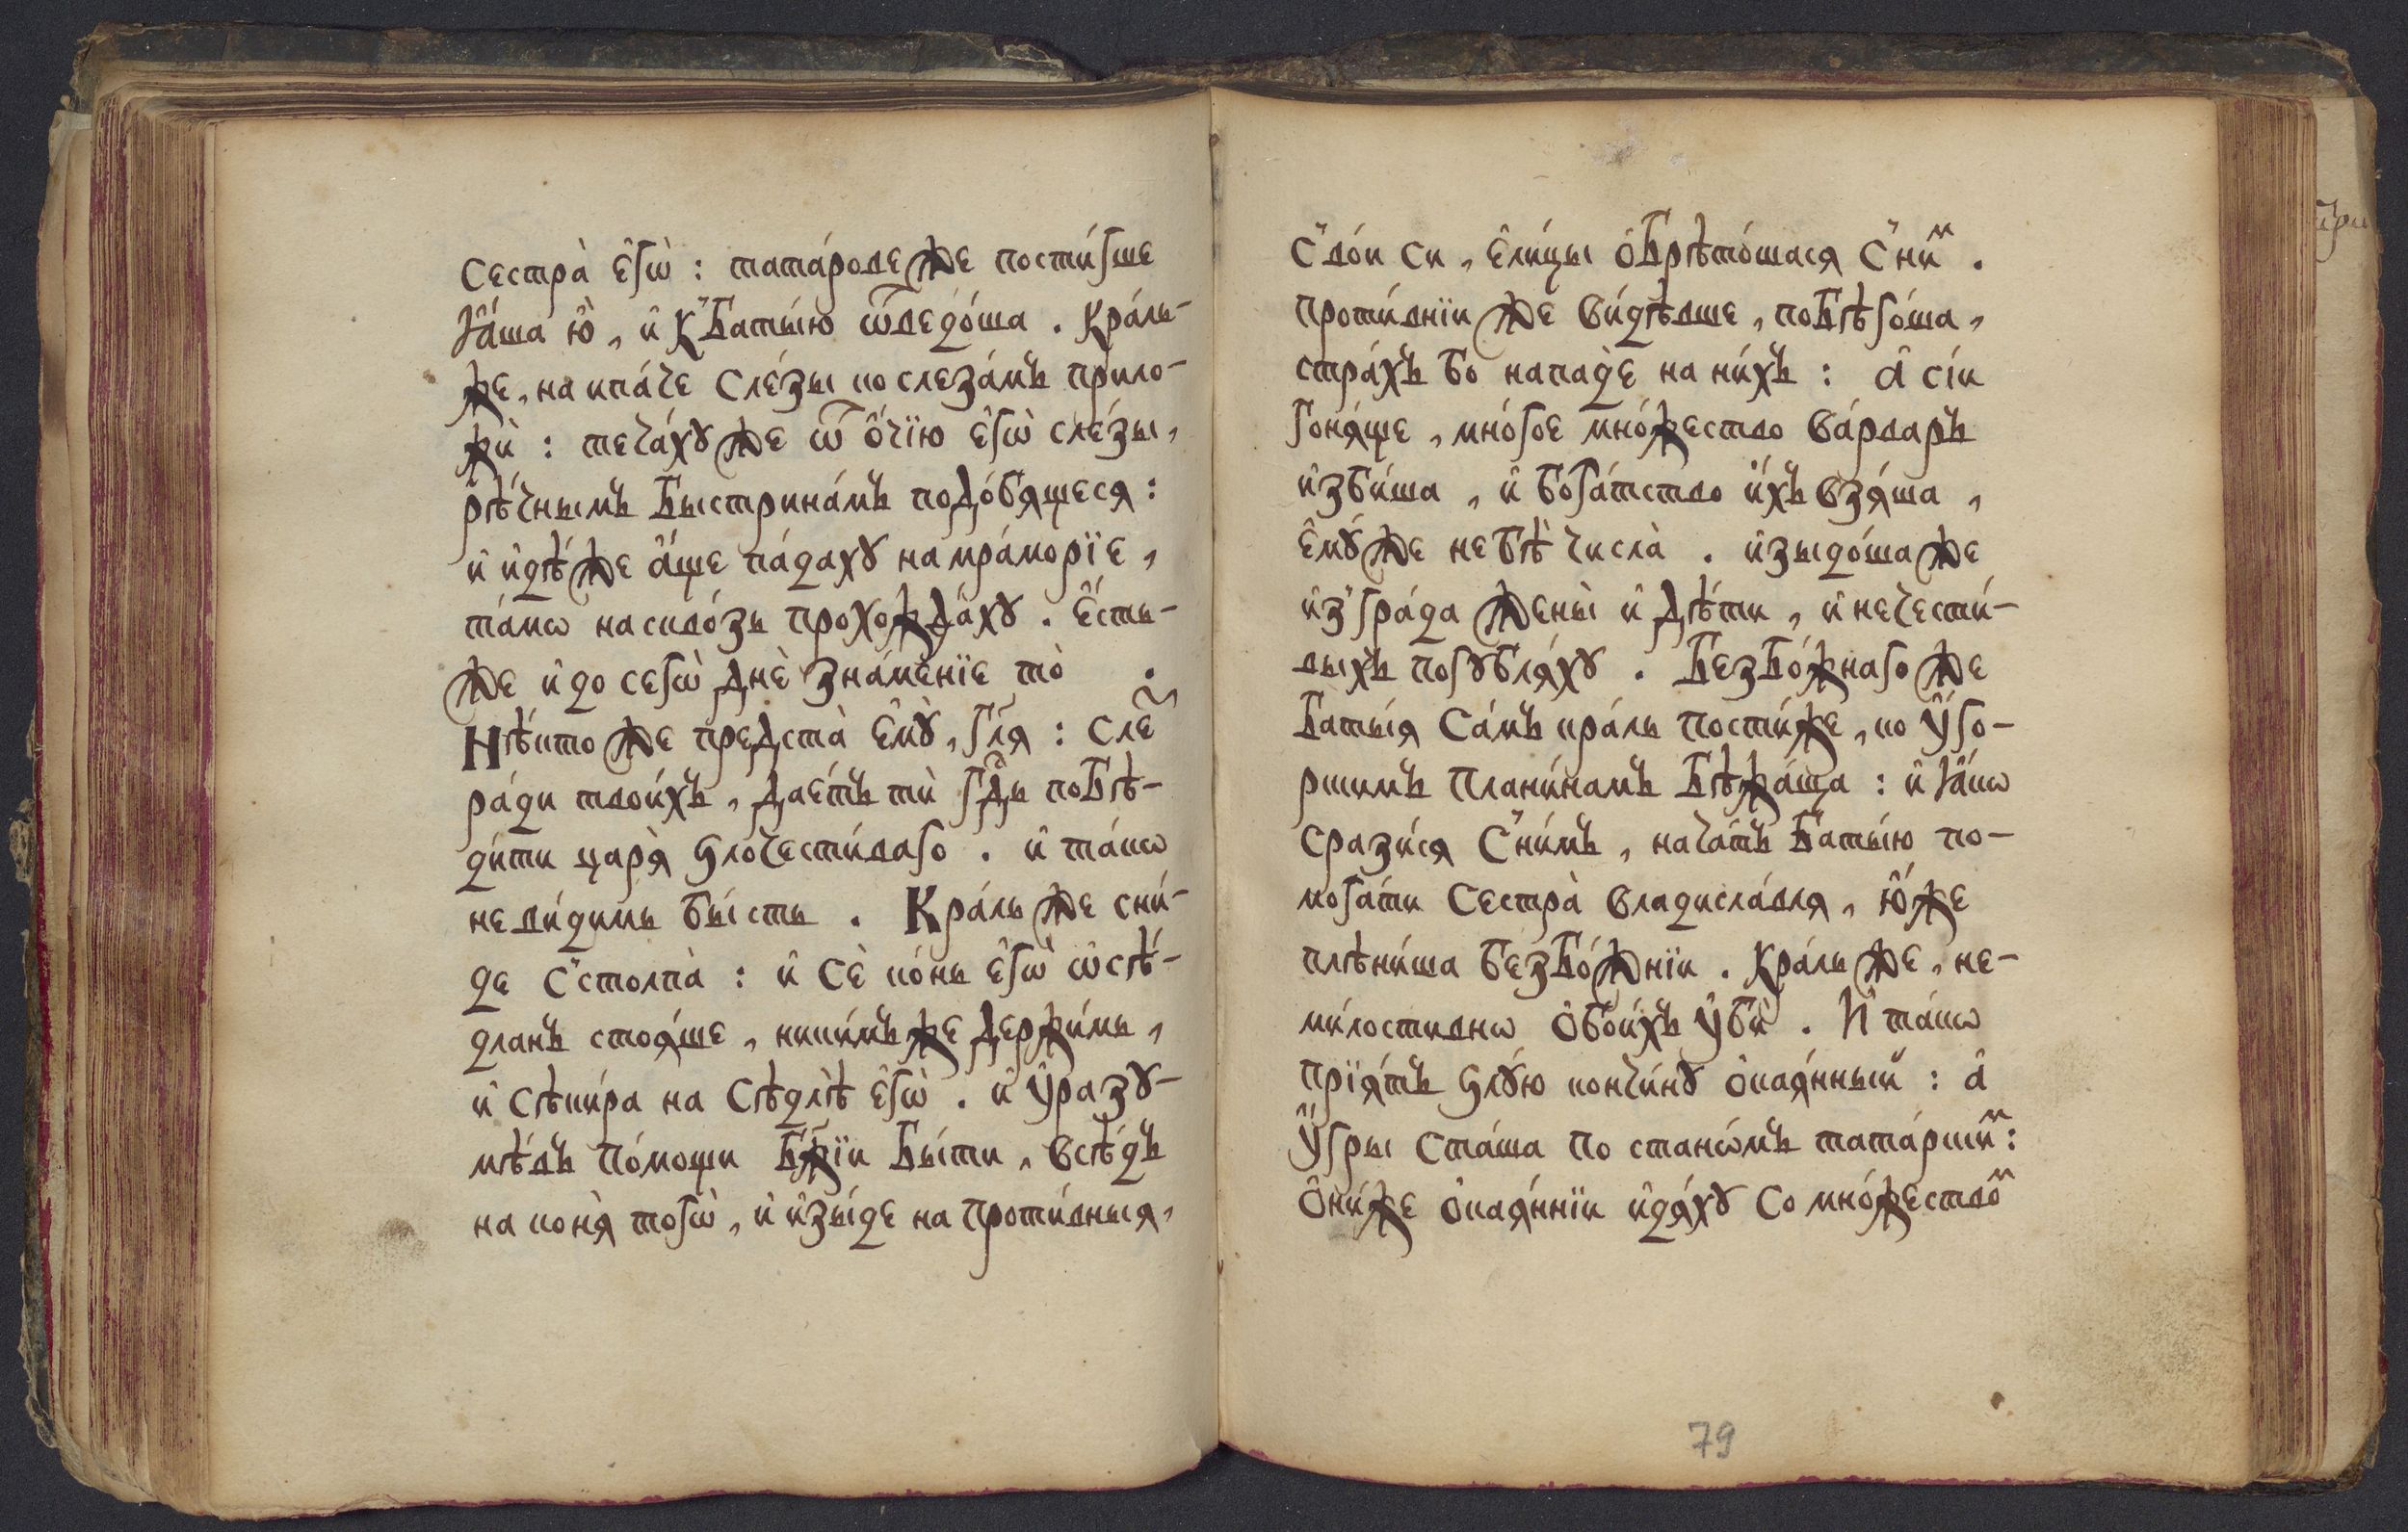 сестра̀ є҆гѡ̀ : тата́рове же пости́гше
ꙗ҆́ша ю҆̀ , и҆ к̾ баты́ю ѿведо́ша . кра́ль-
же , на ипа́че сле́зы по слеза́мъ прило-
жѝ : теча́хꙋ же ѿ ѻ҆́чїю є҆гѡ̀ сле́зы ,
рѣ́чнымъ быстрина́мъ подо́бящеся :
и҆ и҆дѣ́же а҆́ще па́дахꙋ на мра́морїе ,
та́мѡ наскво́зь прохожда́хꙋ . є҆́сть-
же и҆ до сегѡ̀ днѐ зна́менїе то̀ .
Нѣ́кто же предста̀ є҆мꙋ̀ , гл҃я : сле҃
ра́ди твои́хъ , дае́тъ тѝ гд҇ь побѣ-
ди́ти царя̀ ѕлочести́ваго . и҆ та́кѡ
неви́димь бы́сть . Кра́ль же сни́-
де с̾ столпа̀ : и҆ сѐ ко́нь є҆гѡ̀ ѡ҆сѣ́-
дланъ стоя́ше , ники́мъже держи́мь ,
и҆ сѣки́ра на сѣдлѣ̀ є҆гѡ̀ . и҆ ᲂу҆разꙋ-
мѣ́въ по́мощи бж҃їи бы́ти , всѣ́дъ
на коня̀ тогѡ̀ , и҆ и҆зы́де на проти́вныя ,
с̾ во́и си , є҆ли́цы ѻ҆брѣто́шася с̾ ни́м .
проти́внїи же ви́дѣвше , побѣго́ша ,
стра́хъ бо нападѐ на ни́хъ : а҆ сі́и
гоня́ще , мно́гое мно́жество ва́рваръ
и҆зби́ша , и҆ бога́тство и҆́хъ взя́ша ,
є҆мꙋ́же не бѣ̀ числа̀ . и҆зыдо́ша же
и҆з̾ гра́да жены̀ и҆ дѣ́ти , и҆ нечести́-
выхъ погꙋбля́хꙋ . безбо́жнаго же
баты́я са́мъ кра́ль пости́же , ко ᲂу҆́го-
рскимъ плани́намъ бѣжа́ща : и҆ ꙗ҆́кѡ
срази́ся с̾ ни́мъ , нача́тъ баты́ю по-
мога́ти сестра̀ владисла́вля , ю҆́же
плѣни́ша безбо́жнїи . кра́ль же , не-
ми́лостивнѡ ѻ҆бои́хъ ᲂу҆бѝ . И҆ та́кѡ
прїя́тъ ѕлꙋ́ю кончи́нꙋ ѻ҆кая́нный : а҆
ᲂу҆́гры ста́ша по станѡ́мъ тата́рски́м :
ѻ҆ни́же ѻ҆кая́ннїи и҆дя́хꙋ со мно́жество́м
79